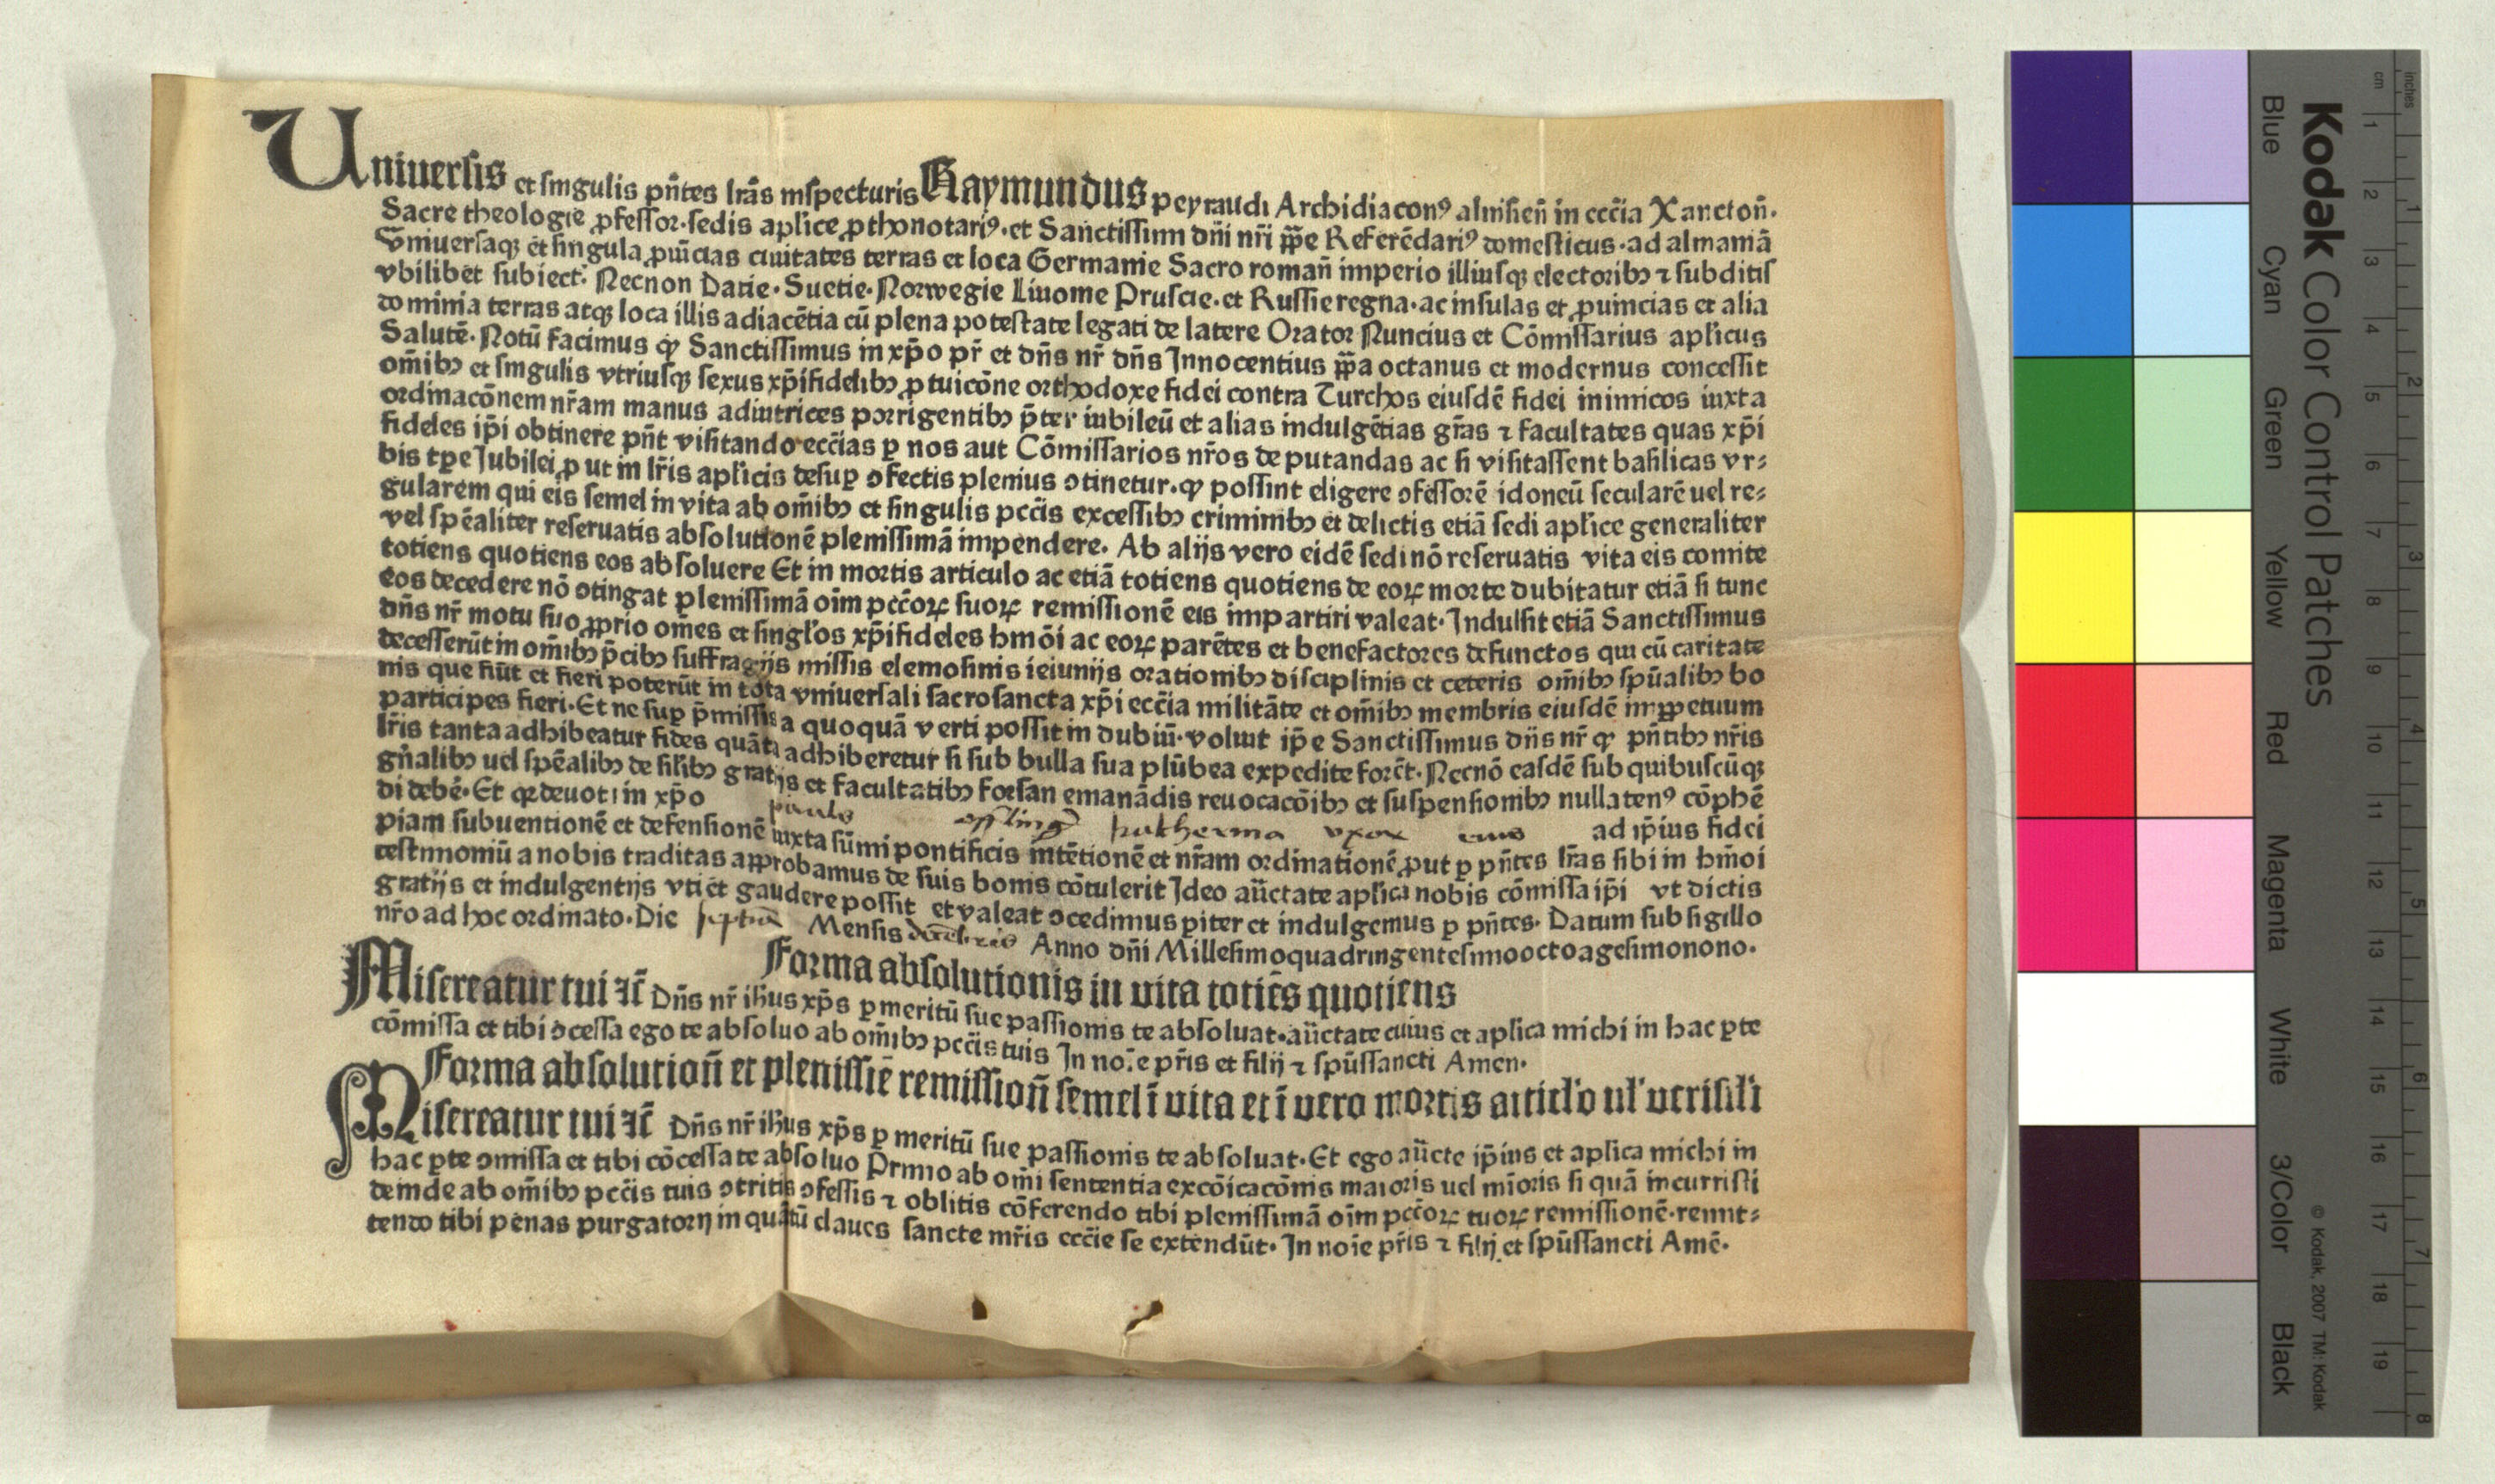 Uniuersis et singulis pñtes lrãs inspecturis Raymundus peyraudi Archidiaconꝰ alnisieñ in eccĩa Xanctoñ.
Sacre theologie ꝓfessor. sedis aplice ꝓthonotariꝰ. et Sanctissimi dñi nr̃i ꝓp̃e Referẽdariꝰ domesticus. ad almaniã
Vniuersaqꝫ et singula ꝓuĩcias ciuitates terras et loca Germanie Sacro romañ imperio illiusqꝫ electoribꝰ ⁊ subditis
vbilibet subiect. Necnon Datie. Suetie. Norwegie Liuonie Pruscie. et Russie regna. ac insulas et ꝓuincias et alia
dominia terras atqꝫ loca illis adiacẽtia cũ plena potestate legati de latere Orator Nuncius et Cõmissarius apl'icus
Salutẽ. Notũ facimus ꝙ Sanctissimus in xp̃o pr̃ et dñs nr̃ dñs Innocentius pp̃a octauus et modernus concessit
om̃ibꝰ et singulis vtriusqꝫ sexus xp̃ifidelibꝰ ꝓ tuicõne orthodoxe fidei contra Turchos eiusdẽ fidei inimicos iuxta
ordinacõnem nr̃am manus adiutrices porrigentibꝰ p̃ter iubileũ et alias indulgẽtias gr̃as ⁊ facultates quas xp̃i
fideles ip̃i obtinere pñt visitando eccĩas ꝑ nos aut Cõmissarios nr̃os deputandas ac si visitassent basilicas vr⸗
bis tꝑe Jubilei ꝓut in lr̃is apl'icis desuꝑ ꝯfectis plenius ꝯtinetur. ꝙ possint eligere ꝯfessorẽ idoneũ secularẽ uel re⸗
gularem qui eis semel in vita ab om̃ibꝰ et singulis pcc̃is excessibꝰ criminibꝰ et delictis etiã sedi apl'ice generaliter
vel sp̃ealiter reseruatis absolutionẽ plenissimã impendere. Ab alijs vero eidẽ sedi nõ reseruatis vita eis comite
totiens quotiens eos absoluere Et in mortis articulo ac etiã totiens quotiens de eoꝝ morte dubitatur etiã si tunc
eos decedere nõ ꝯtingat plenissimã oĩm pcc̃oꝝ suoꝝ remissionẽ eis impartiri valeat. Indulsit etiã Sanctissimus
dñs nr̃ motu suo ꝓprio om̃es et singl'os xp̃ifideles hmõi ac eoꝝ parẽtes et benefactores defunctos qui cũ caritate
decesserũt in om̃ibꝰ p̃cibꝰ suffragijs missis elemosinis ieiunijs orationibꝰ disciplinis et ceteris om̃ibꝰ spũalibꝰ bo
nis que fiũt et fieri poterũt in tota vniuersali sacrosancta xp̃i eccĩa militãte et om̃ibꝰ membris eiusdẽ in ꝑpetuum
participes fieri. Et ne suꝑ p̃missis a quoquã verti possit in dubiũ. voluit ip̃e Sanctissimus dñs nr̃ ꝙ pñtibꝰ nr̃is
lr̃is tanta adhibeatur fides quãta adhiberetur si sub bulla sua plũbea expedite forẽt. Necnõ easdẽ sub quibuscũqꝫ
gñalibꝰ uel sp̃ealibꝰ de sil'ibꝰ gratijs et facultatibꝰ forsan emanãdis reuocacõibꝰ et suspensionibꝰ nullatenꝰ cõphẽ
di debẽ. Et qꝛ deuoti in xp̃o paulo katherina vxor eius ad ip̃ius fidei
piam subuentionẽ et defensionẽ iuxta sũmi pontificis intẽtionẽ et nr̃am ordinationẽ ꝓut ꝑ pñtes lr̃as sibi in hmõi
testimoniũ a nobis traditas approbamus de suis bonis cõtulerit Ideo aũctate aplica nobis cõmissa ip̃i vt dictis
gratijs et indulgentijs vti et gaudere possit et valeat ꝯcedimus piter et indulgemus ꝑ pñtes. Datum sub sigillo
nr̃o ad hoc ordinato. Die septĩa Mensis decẽbris Anno dñi Millesimoquadringentesimooctoagesimonono.
Forma absolutionis in vita totiẽs quotiens
Misereatur tui ⁊c̃ Dñs nr̃ ihus xp̃s ꝑ meritũ sue passionis te absoluat. aũctate cuius et aplica michi in hac ꝑte
cõmissa et tibi ꝯcessa ego te absoluo ab om̃ibꝰ pcc̃is tuis In noĩe pr̃is et filij ⁊ spũssancti Amen.
Forma absolutioñ et plenissiẽ remissioñ semel ĩ vita et ĩ vero mortis articl'o ul' verisil'i
Misereatur tui ⁊c̃ Dñs nr̃ ihus xp̃s ꝑ meritũ sue passionis te absoluat. Et ego aũcte ip̃ius et aplica michi in
hac ꝑte ꝯmissa et tibi cõcessa te absoluo Primo ab om̃i sententia excõicacõnis maioris uel mĩoris si quã incurristi
deinde ab om̃ibꝰ pcc̃is tuis ꝯtritis ꝯfessis ⁊ oblitis cõferendo tibi plenissimã oĩm pcc̃oꝝ tuoꝝ remissionẽ. remit⸗
tendo tibi penas purgatorij in quãtũ claues sancte mr̃is eccĩe se extendũt. In noĩe pr̃is ⁊ filij et spũssancti Amẽ.
Kodak Color Control Patches
Blue Cyan Green Yellow Red Magenta White 3/Color Black
© Kodak, 2007 TM: Kodak
inches 1 2 3 4 5 6 7 8
cm 1 2 3 4 5 6 7 8 9 10 11 12 13 14 15 16 17 18 19